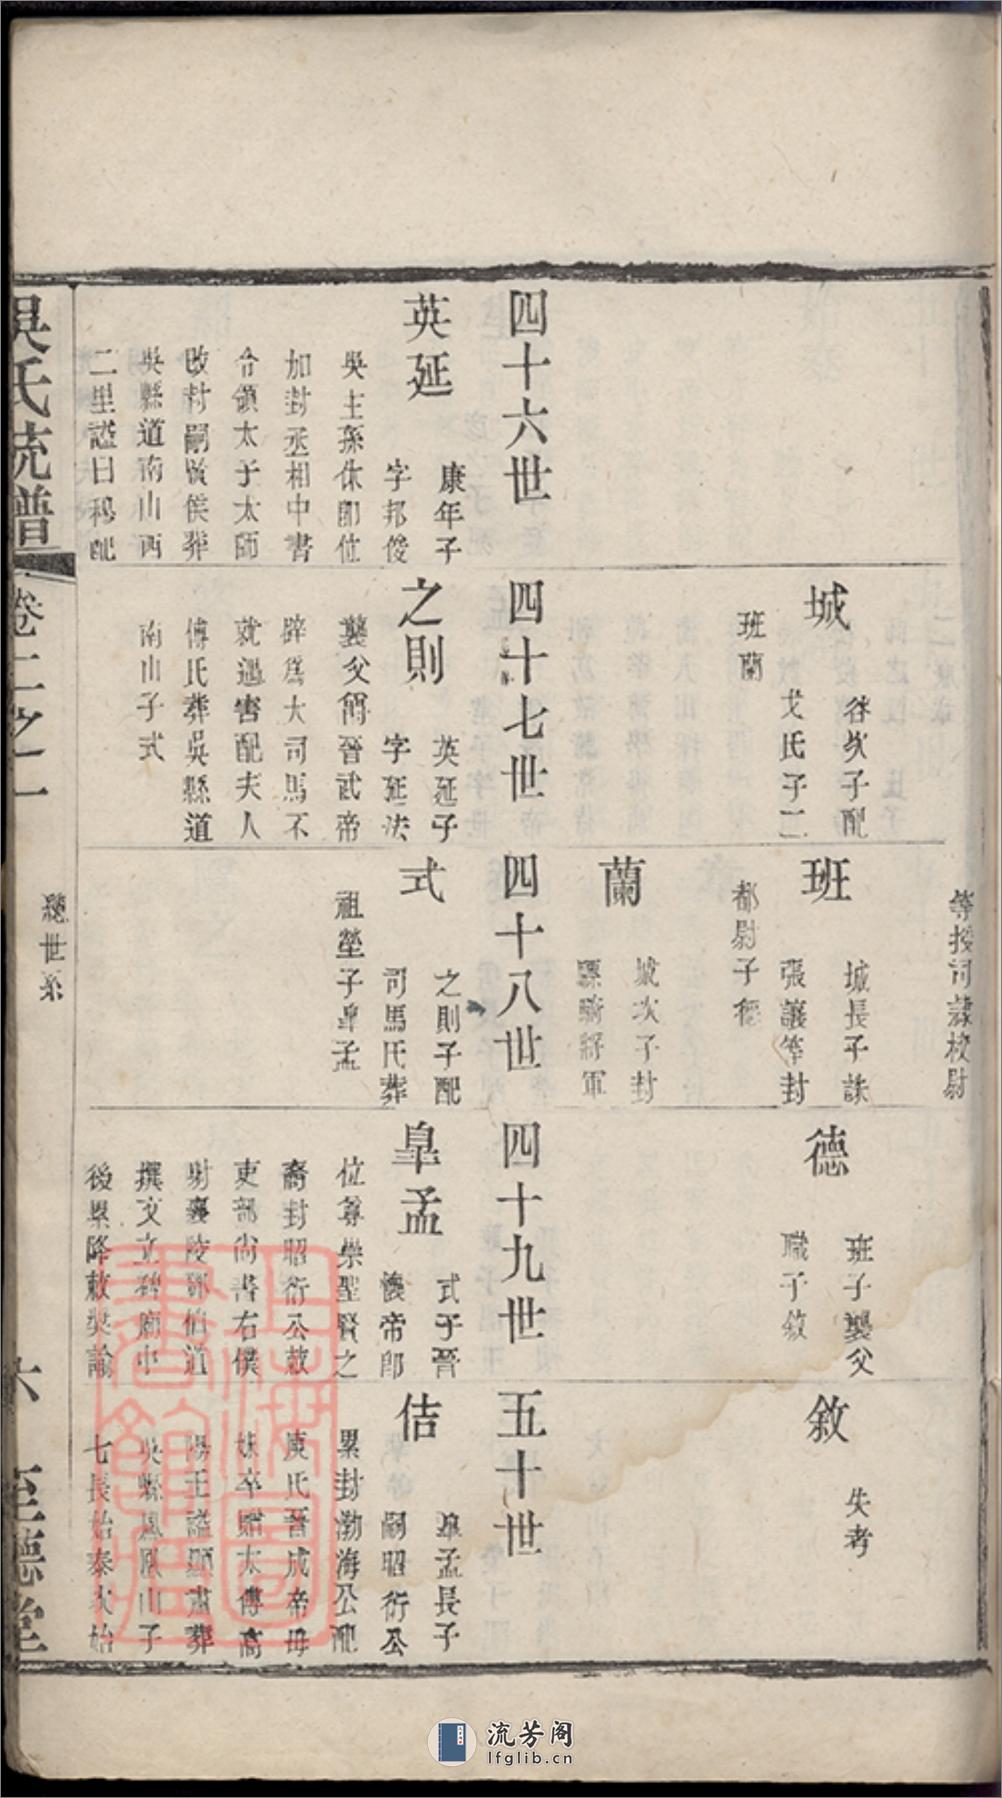 等授司隸校尉
城
谷次子配
戈氏子二
班蘭
班
城長子誅
張讓等封
都尉子德
蘭
城次子封
驃騎將軍
德
班子襲父
職子敘
敘
失考
四十六世
英延
康年子
字邦俊
吳主孫休卽位
加封丞相中書
令領太子太師
改封嗣賢侯葬
吳縣道南山西
二里諡曰穆配
四十七世
之則
英延子
字延法
襲父爵晉武帝
辟爲大司馬不
就遇害配夫人
傅氏葬吳縣道
南山子式
四十八世
式
之則子配
司馬氏葬
祖塋子皐孟
四十九世
皐孟
式子晉
懷帝卽
位尊崇聖賢之
裔封昭衍公敕
吏部尚書右僕
射襄陵鄧伯道
撰文立碑廟中
後累降敕奬諭
五十世
佶
皐孟長子
嗣昭衍公
累封渤海公配
庾氏晉成帝母
妹卒贈太傅高
陽王諡顯肅葬
吳縣鳳凰山子
七長始泰次始
吳氏統譜
卷二之一
總世系
六
至德堂
上海圖書館藏
流芳阁
lfglib.cn